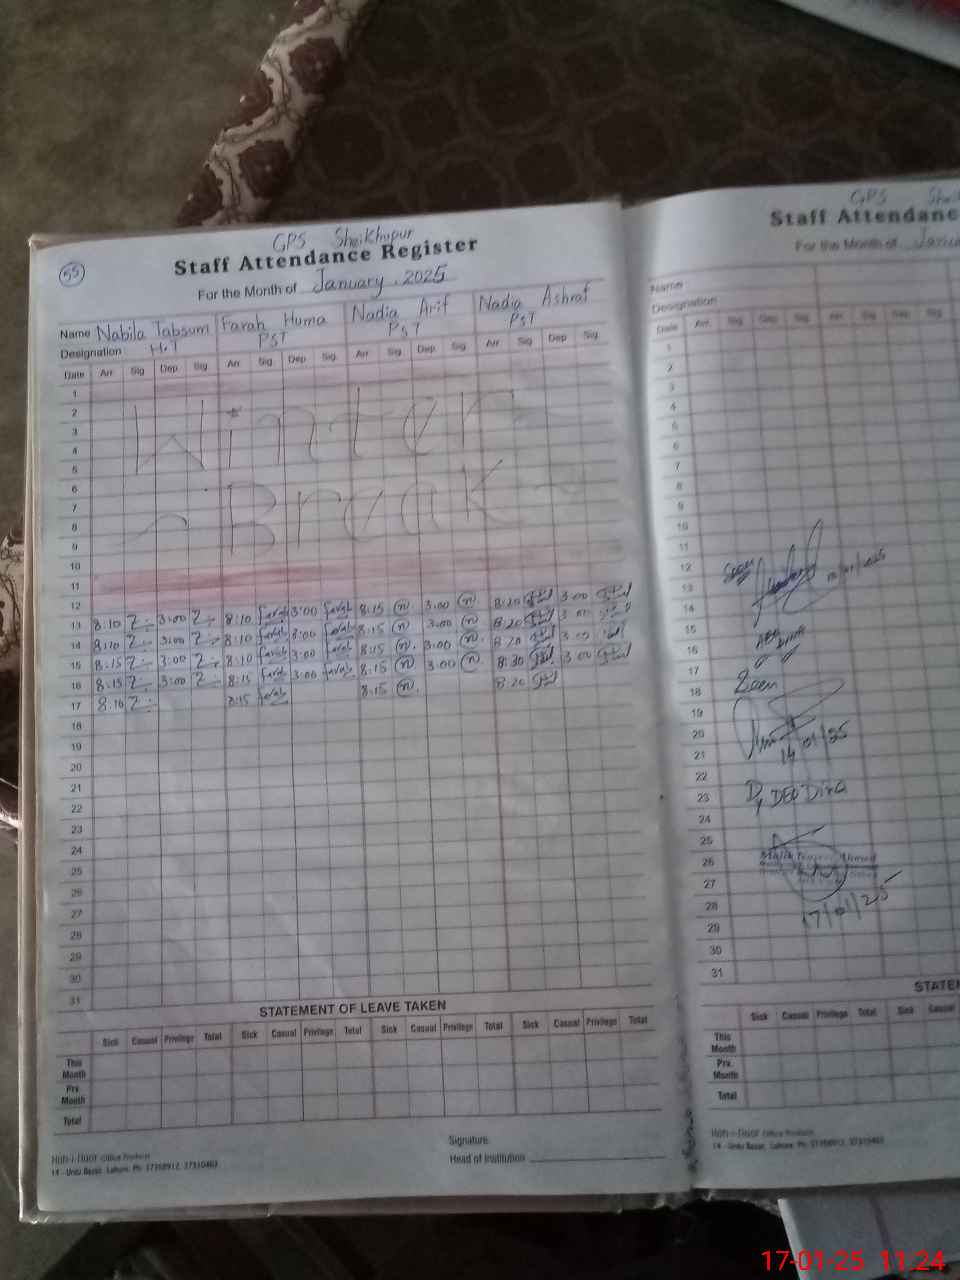 GPS Sheikhupur
55
Staff Attendance Register
For the Month of January, 2025
Name Nabila Tabsum Farah Huma Nadia Arif Nadia Ashraf
Designation H.T PST PST PST
Date Arr. Sig. Dep. Sig. Arr. Sig. Dep. Sig. Arr. Sig. Dep. Sig. Arr. Sig. Dep. Sig.
1
2
3
4
5
Winter
6
7
8
9
Break
10
11
12
13 8:10 3:00 8:10 Farah 3:00 Farah 8:15 n 3:00 n 8:20 3:00
14 8:10 3:00 8:10 Farah 3:00 Farah 8:15 n 3:00 n 8:20 3:00
15 8:15 3:00 8:10 Farah 3:00 Farah 8:15 n 3:00 n 8:20 3:00
16 8:15 3:00 8:15 Farah 3:00 Farah 8:15 n 3:00 n 8:30 3:00
17 8:10 8:15 Farah 8:15 n 8:20
18
19
20
21
22
23
24
25
26
27
28
29
30
31
STATEMENT OF LEAVE TAKEN
Sick Casual Privilege Total Sick Casual Privilege Total Sick Casual Privilege Total Sick Casual Privilege Total
This Month
Prv. Month
Total
Signature
Head of Institution
Office Products
14 - Urdu Bazar, Lahore. Ph: 37358912, 37310463
GPS
Staff Attendanc
For the Month of
Name
Designation
Date Arr. Sig. Dep. Sig. Arr. Sig. Dep. Sig.
1
2
3
4
5
6
7
8
9
10
11
12
13
14
15
16
17
18
19
20
21
14/01/25
22
23 Dy DEO Dina
24
25
26
27
28 17/01/25
29
30
31
STATE
Sick Casual Privilege Total Sick Casual
This Month
Prv. Month
Total
Office Products
14 - Urdu Bazar, Lahore. Ph: 37358912, 37310463
17-01-25 11:24